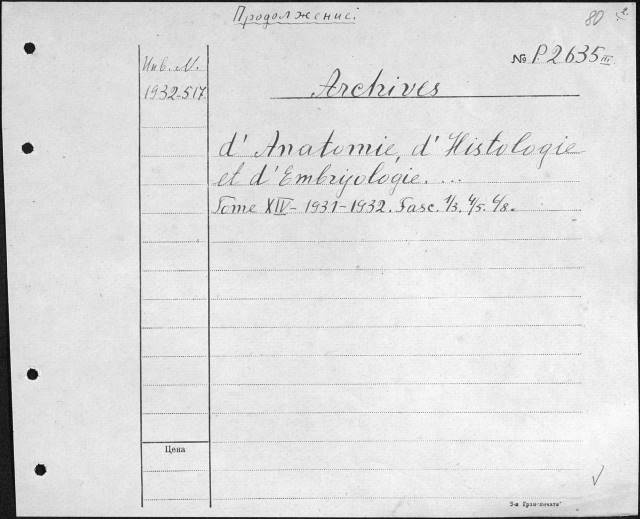 Продолжение.
80
2.
№ P.2635 III.
Инв. N.
1932-517
Archives
d' Anatomie, d' Histologie
et d'Embryologie. ...
Tome XIV - 1931-1932. Fasc. 1/3. 4/5. 6/8.
Цена